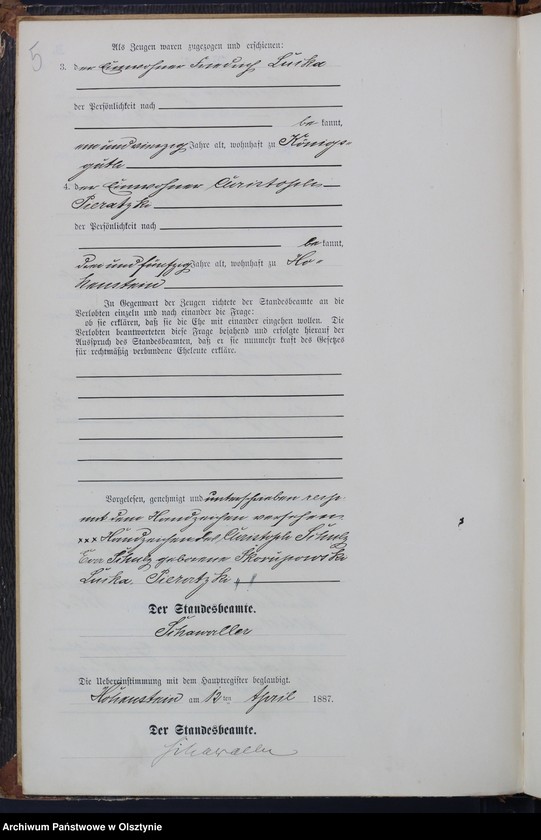 5
Als Zeugen waren zugezogen und erschienen:
3. der Einwohner Friedrich Luska
der Persönlichkeit nach
be kannt,
ein und vierzig Jahre alt, wohnhaft zu Königs-
guth
4. der Einwohner Christoph
Pieratzki
der Persönlichkeit nach
be kannt,
drei und fünfzig Jahre alt, wohnhaft zu Ho-
henstein
In Gegenwart der Zeugen richtete der Standesbeamte an die
Verlobten einzeln und nach einander die Frage:
ob sie erklären, daß sie die Ehe mit einander eingehen wollen. Die
Verlobten beantworteten diese Frage bejahend und erfolgte hierauf der
Ausspruch des Standesbeamten, daß er sie nunmehr kraft des Gesetzes
für rechtmäßig verbundene Eheleute erkläre.
Vorgelesen, genehmigt und unterschrieben resp.
mit dem Handzeichen versehen
xxx Handzeichen des Christoph Schulz
Eva Schulz geborene Skorupowski
Luska. Pieratzki
Der Standesbeamte.
Schawaller
Die Uebereinstimmung mit dem Hauptregister beglaubigt.
Hohenstein am 12 ten April 1887.
Der Standesbeamte.
Schawaller
Archiwum Państwowe w Olsztynie